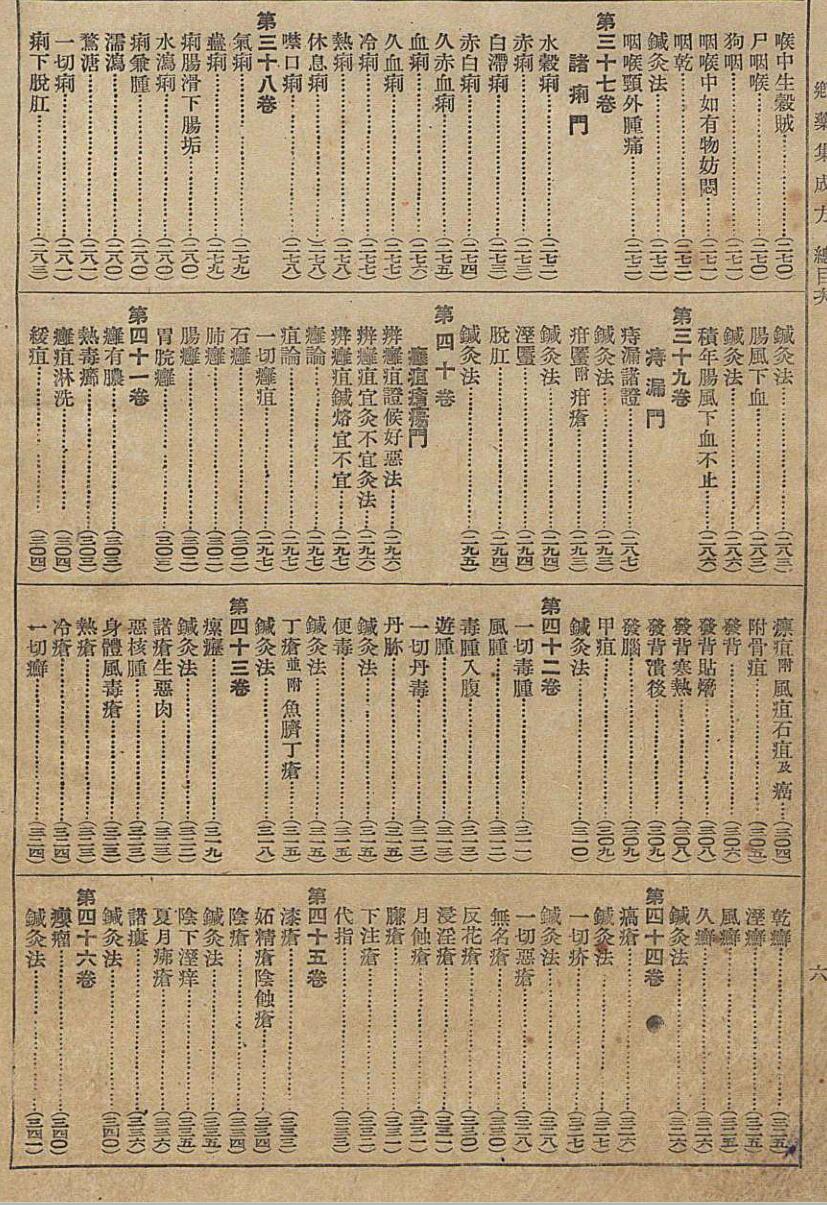 鄕藥集成方 總目次
六
喉中生穀賊……(二七〇)
尸咽喉……(二七〇)
狗咽……(二七一)
咽喉中如有物妨悶……(二七一)
咽乾……(二七二)
鍼灸法……(二七二)
咽喉頸外腫痛……(二七二)
第三十七卷
諸痢門
水穀痢……(二七二)
赤痢……(二七三)
白滯痢……(二七三)
赤白痢……(二七四)
久赤血痢……(二七五)
血痢……(二七六)
久血痢……(二七七)
冷痢……(二七七)
熱痢……(二七八)
休息痢……(二七八)
噤口痢……(二七八)
第三十八卷
氣痢……(二七九)
蠱痢……(二七九)
痢腸滑下腸垢……(二八〇)
水瀉痢……(二八〇)
痢兼腫……(二八〇)
濡瀉……(二八〇)
鶩溏……(二八一)
一切痢……(二八一)
痢下脫肛……(二八三)
鍼灸法……(二八三)
腸風下血……(二八三)
鍼灸法……(二八六)
積年腸風下血不止……(二八六)
第三十九卷
痔漏門
痔漏諸證……(二八七)
鍼灸法……(二九三)
疳䘌附疳瘡……(二九三)
鍼灸法……(二九四)
溼䘌……(二九四)
脫肛……(二九四)
鍼灸法……(二九五)
第四十卷
癰疽瘡瘍門
辨癰疽證候好惡法……(二九六)
辨癰疽宜灸不宜灸法……(二九六)
辨癰疽鍼烙宜不宜……(二九七)
癰論……(二九七)
疽論……(二九七)
一切癰疽……(二九七)
石癰……(三〇二)
肺癰……(三〇二)
腸癰……(三〇二)
胃脘癰……(三〇三)
第四十一卷
癰有膿……(三〇三)
熱毒癤……(三〇三)
癰疽淋洗……(三〇四)
緩疽……(三〇四)
瘭疽附風疽石疽及瘑……(三〇四)
附骨疽……(三〇五)
發背……(三〇六)
發背貼熁……(三〇八)
發背寒熱……(三〇八)
發背潰後……(三〇九)
發腦……(三〇九)
甲疽……(三〇九)
鍼灸法……(三一〇)
第四十二卷
一切毒腫……(三一一)
風腫……(三一二)
毒腫入腹……(三一三)
遊腫……(三一三)
一切丹毒……(三一三)
丹胗……(三一五)
鍼灸法……(三一五)
便毒……(三一五)
鍼灸法……(三一五)
丁瘡並附魚臍丁瘡……(三一五)
鍼灸法……(三一八)
第四十三卷
瘰癧……(三一九)
鍼灸法……(三二二)
諸瘡生惡肉……(三二三)
惡核腫……(三二三)
身體風毒瘡……(三二三)
熱瘡……(三二三)
冷瘡……(三二四)
一切癬……(三二四)
乾癬……(三二五)
溼癬……(三二五)
風癬……(三二五)
久癬……(三二六)
鍼灸法……(三二六)
第四十四卷
瘑瘡……(三二六)
鍼灸法……(三二七)
一切疥……(三二七)
鍼灸法……(三二八)
一切惡瘡……(三二八)
無名瘡……(三三〇)
反花瘡……(三三〇)
浸淫瘡……(三三一)
月蝕瘡……(三三一)
臁瘡……(三三一)
下注瘡……(三三二)
代指……(三三三)
第四十五卷
漆瘡……(三三三)
妬精瘡陰蝕瘡……(三三四)
陰瘡……(三三四)
鍼灸法……(三三五)
陰下溼痒……(三三五)
夏月疿瘡……(三三六)
諸瘻……(三三六)
鍼灸法……(三四〇)
第四十六卷
癭瘤……(三四〇)
鍼灸法……(三四一)